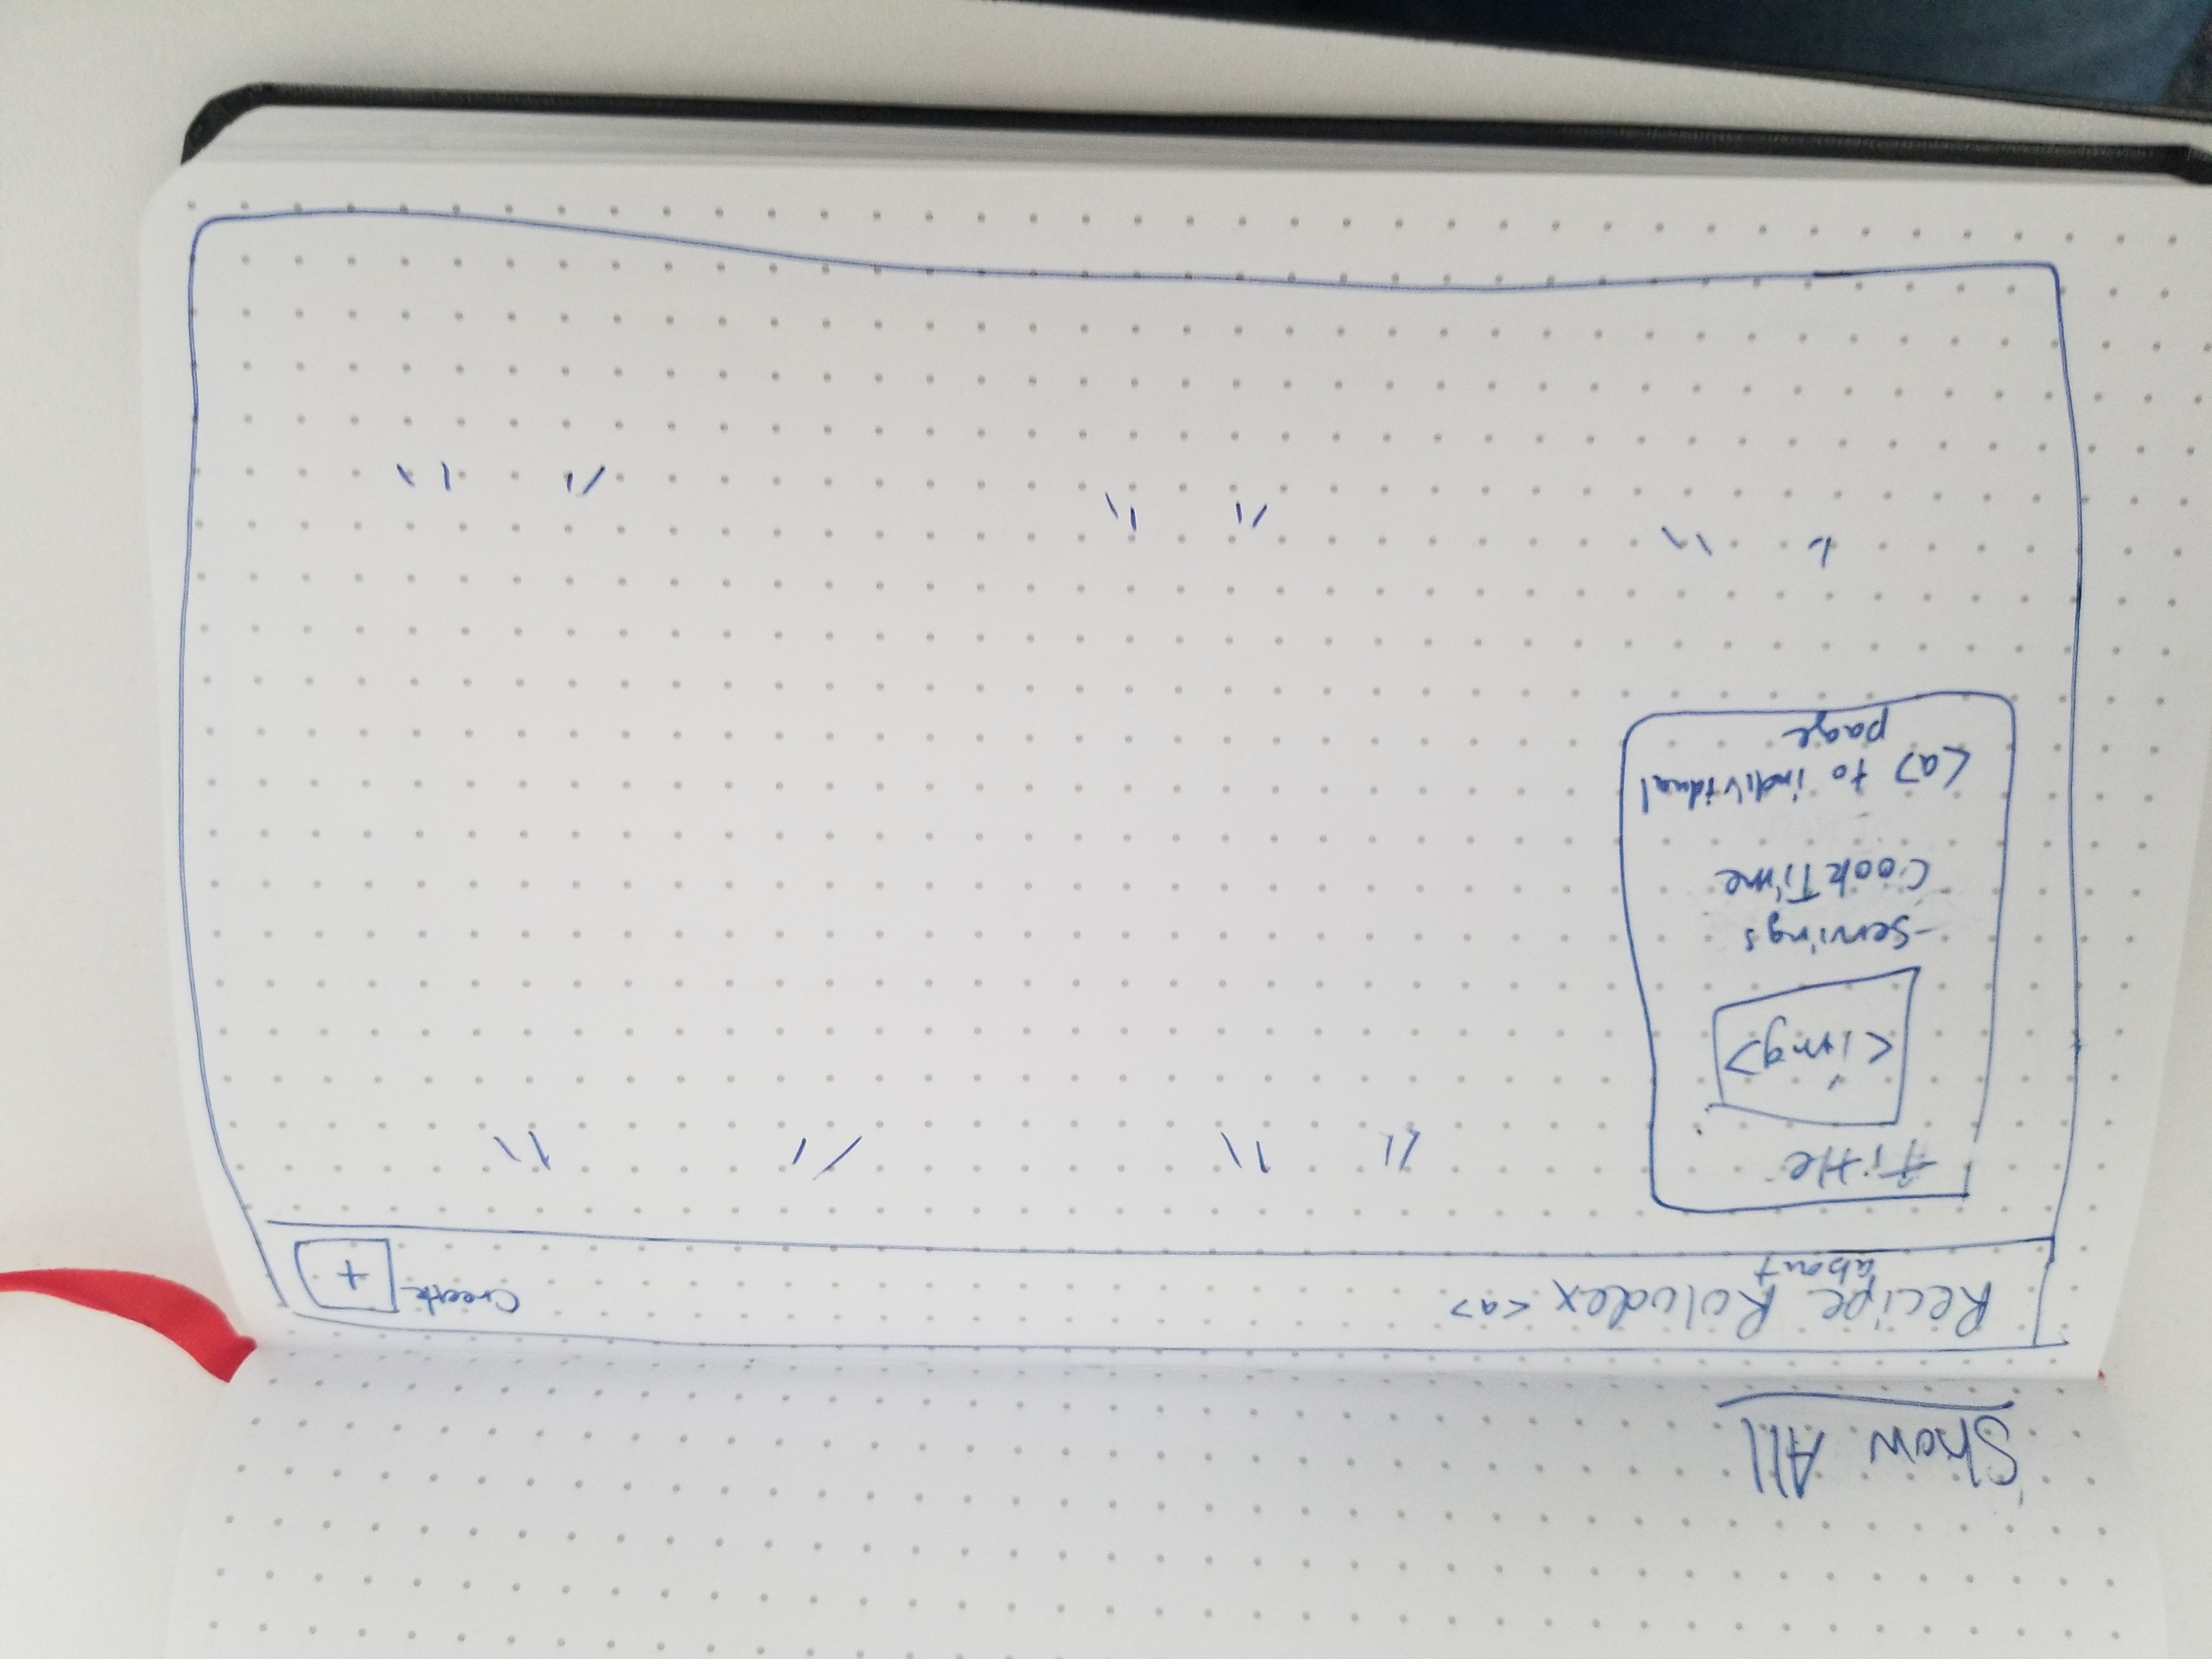 Show All
Recipe Roludex <a>
about
Create +
title
<img>
-Servings
Cook Time
<a> to individual
page
" "
" "
" "
" "
" "